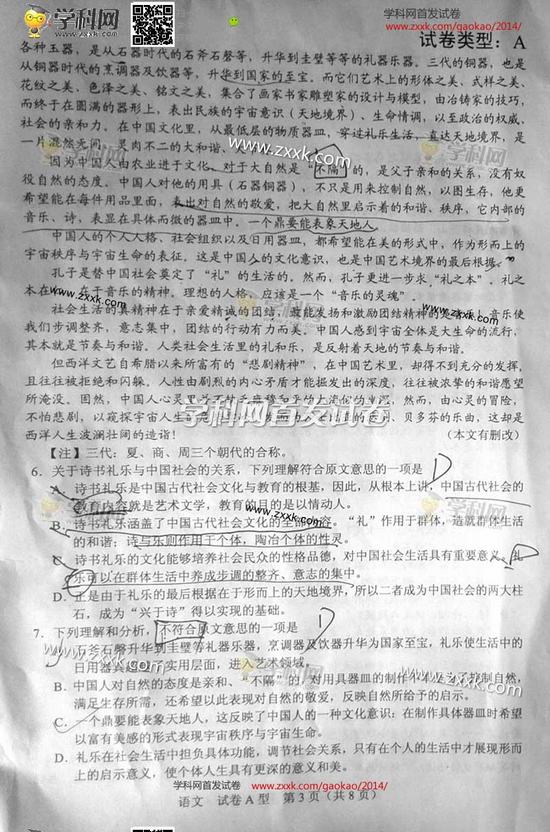 学科网首发试卷
www.zxxk.com/gaokao/2014/
学科网
试卷类型：A
各种玉器，是从石器时代的石斧石磬等，升华到圭璧等等的礼器乐器。三代的铜器，也是
从铜器时代的烹调器及饮器等，升华到国家的至宝。而它们艺术上的形体之美、式样之美、
花纹之美、色泽之美、铭文之美，集合了画家书家雕塑家的设计与模型，由冶铸家的技巧，
而终于在圆满的器形上，表出民族的宇宙意识（天地境界）、生命情调，以至政治的权威，
社会的亲和力。在中国文化里，从最低层的物质器皿，穿过礼乐生活，直达天地境界，是
一片混然无间，灵肉不二的大和谐
www.zxxk.com
学科网
因为中国人由农业进于文化，对于大自然是“不隔”的，是父子亲和的关系，没有奴
役自然的态度。中国人对他的用具（石器铜器），不只是用来控制自然，以图生存，他更
希望能在每件用品里面，表出对自然的敬爱，把大自然里启示着的和谐、秩序，它内部的
音乐、诗，表显在具体而微的器皿中。一个鼎要能表象天地人。
中国人的个人人格、社会组织以及日用器皿，都希望能在美的形式中，作为形而上的
宇宙秩序与宇宙生命的表征。这是中国人的文化意识，也是中国艺术境界的最后根据。
孔子是替中国社会奠定了“礼”的生活的。然而，孔子更进一步求“礼之本”。礼之
本在
在于音乐的精神。理想的人格，应该是一个“音乐的灵魂”。
www.zxxk.com
社会生活的真精神在于亲爱精诚的团结，最能发扬和激励团结精神的是音乐！音乐使
我们步调整齐，意志集中，团结的行动有力而美。中国人感到宇宙全体是大生命的流行，
其本就是节奏与和谐。人类社会生活里的礼和乐，是反射着天地的节奏与和谐。
但西洋文艺自希腊以来所富有的“悲剧精神”，在中国艺术里，却得不到充分的发挥，
且往往被拒绝和闪躲。人性由剧烈的内心矛盾才能掘发出的深度，往往被浓挚的和谐愿望
所淹没。固然，中国人心灵
然而，由心灵的冒险，
不怕悲剧，以窥探宇宙人生
贝多芬的乐曲，这却是
西洋人生波澜壮阔的造诣！
（本文有删改）
学科网首发试卷
【注】三代：夏、商、周三个朝代的合称。
6．关于诗书礼乐与中国社会的关系，下列理解符合原文意思的一项是
A．诗书礼乐是中国古代社会文化与教育的根基，因此，从根本上讲，中国古代社会的
教育内容就是艺术文学，教育的目的是以情动人。
B．诗书礼乐涵盖了中国古代社会文化的全部内容。“礼”作用于群体，造就群体生活
的和谐；诗与乐则作用于个体，陶冶个体的性灵。
C．诗书礼乐的文化能够培养社会民众的性格品德，对中国社会生活具有重要意义，礼
乐可以在群体生活中养成步调的整齐、意志的集中。
D．正是由于礼乐的最后根据在于形而上的天地境界，所以二者成为中国社会的两大柱
石，成为“兴于诗”得以实现的基础。
7．下列理解和分析，不符合原文意思的一项是
A．石斧石磬升华到圭璧等礼器乐器，烹调器及饮器升华为国家至宝，礼乐使生活中的
日用器
实用层面，进入艺术领域。
B．中国人对自然的态度是亲和、“不隔”的，对用具器皿的制作不
控制自然，
满足生存所需，还希望以此表现对自然的敬爱，反映自然所给予的启示。
C．一个鼎要能表象天地人，这反映了中国人的一种文化意识：在制作具体器皿时希望
以富有美感的形式表现宇宙秩序与宇宙生命。
D．礼乐在社会生活中担负具体功能，调节社会关系，只有在个人的生活中才展现形而
上的启示意义，使个体人生具有更深的意义和美。
学科网首发试卷
www.zxxk.com/gaokao/2014/
语文 试卷A型 第3页（共8页）